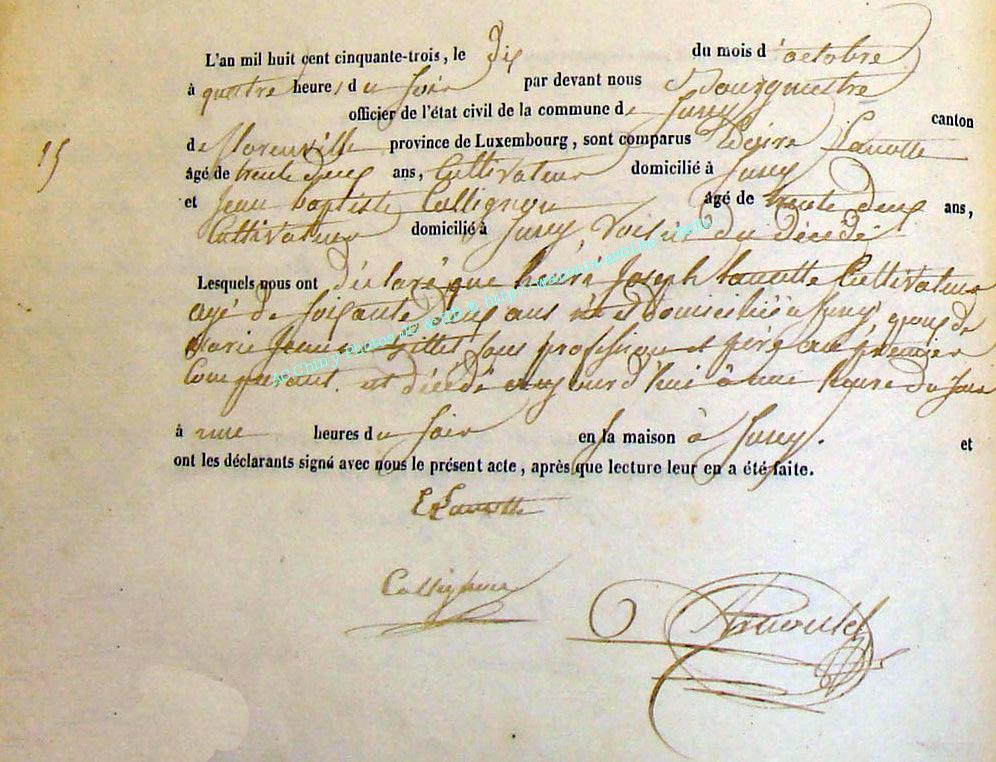 L'an mil huit cent cinquante-trois, le dix du mois d'octobre
à quatre heures du soir par devant nous Bourgmestre
officier de l'état civil de la commune de Jamoy canton
15 de florenville province de Luxembourg, sont comparus Désiré Lanotte
âgé de trente deux ans, Cultivateur domicilié à
et Jean baptiste Collignon âgé de trente deux ans,
Cultivateur domicilié à voisins du décédé
Lesquels nous ont déclaré que henri Joseph Lanotte Cultivateur
agé de soixante deux ans né et domicilié à époux de
Marie Jeanne Gillet sans profession et père au premier
Comparant est décédé aujourd'hui à une heure du soir
à une heures du soir en la maison à et
ont les déclarants signé avec nous le présent acte, après que lecture leur en a été faite.
Lanotte
Collignon